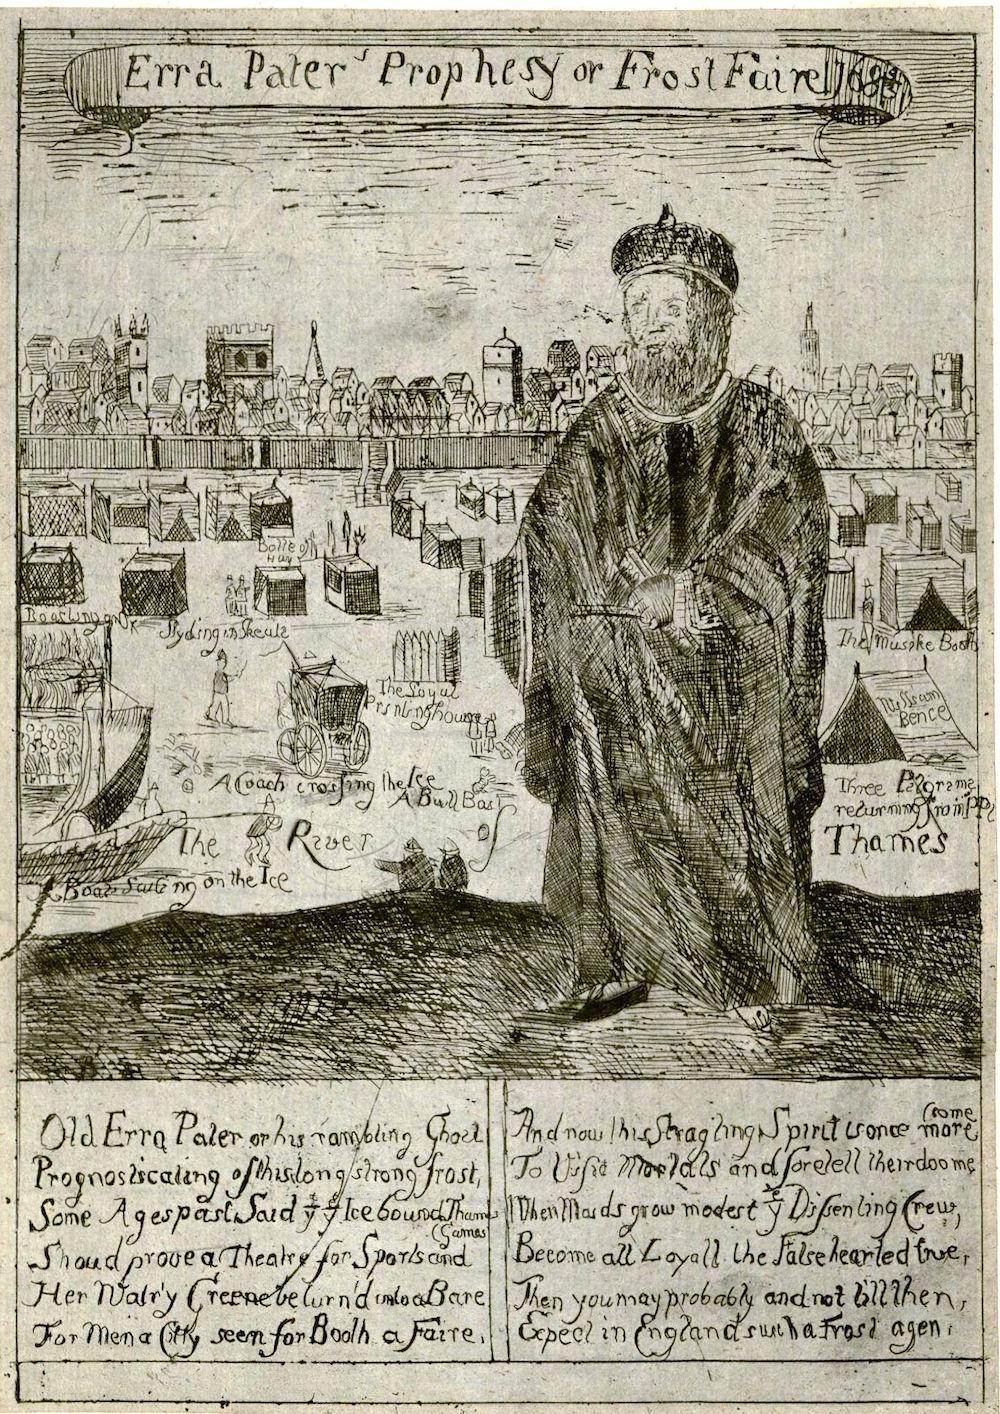 Erra Pater's Prophesy or Frost Faire 1683
Botte of
Hay
Roasting an Ox
Slyding in Skeats
The Musike Booth
The Loyal
Printing house
Bence
A Coach crossing the Ice
A Bull Bait
Three Pilgrims
returning from
The River of Thames
Boats Sailing on the Ice
Old Erra Pater or his rambling Ghost
Prognosticating of this long strong frost,
Some Ages past Said yt ye Ice bound Thames
Shoud prove a Theatre for Sports and Games
Her Wat'ry Greene be turn'd unto a Bare
For Men a Citty seem for Booth a Faire,
And now this Stragling Spirit is once more come
To Visit Mortals and foretell their doome
When Maids grow modest ye Dissenting Crew,
Become all Loyall the False hearted true,
Then you may probably and not till then,
Expect in England such a Frost agen,